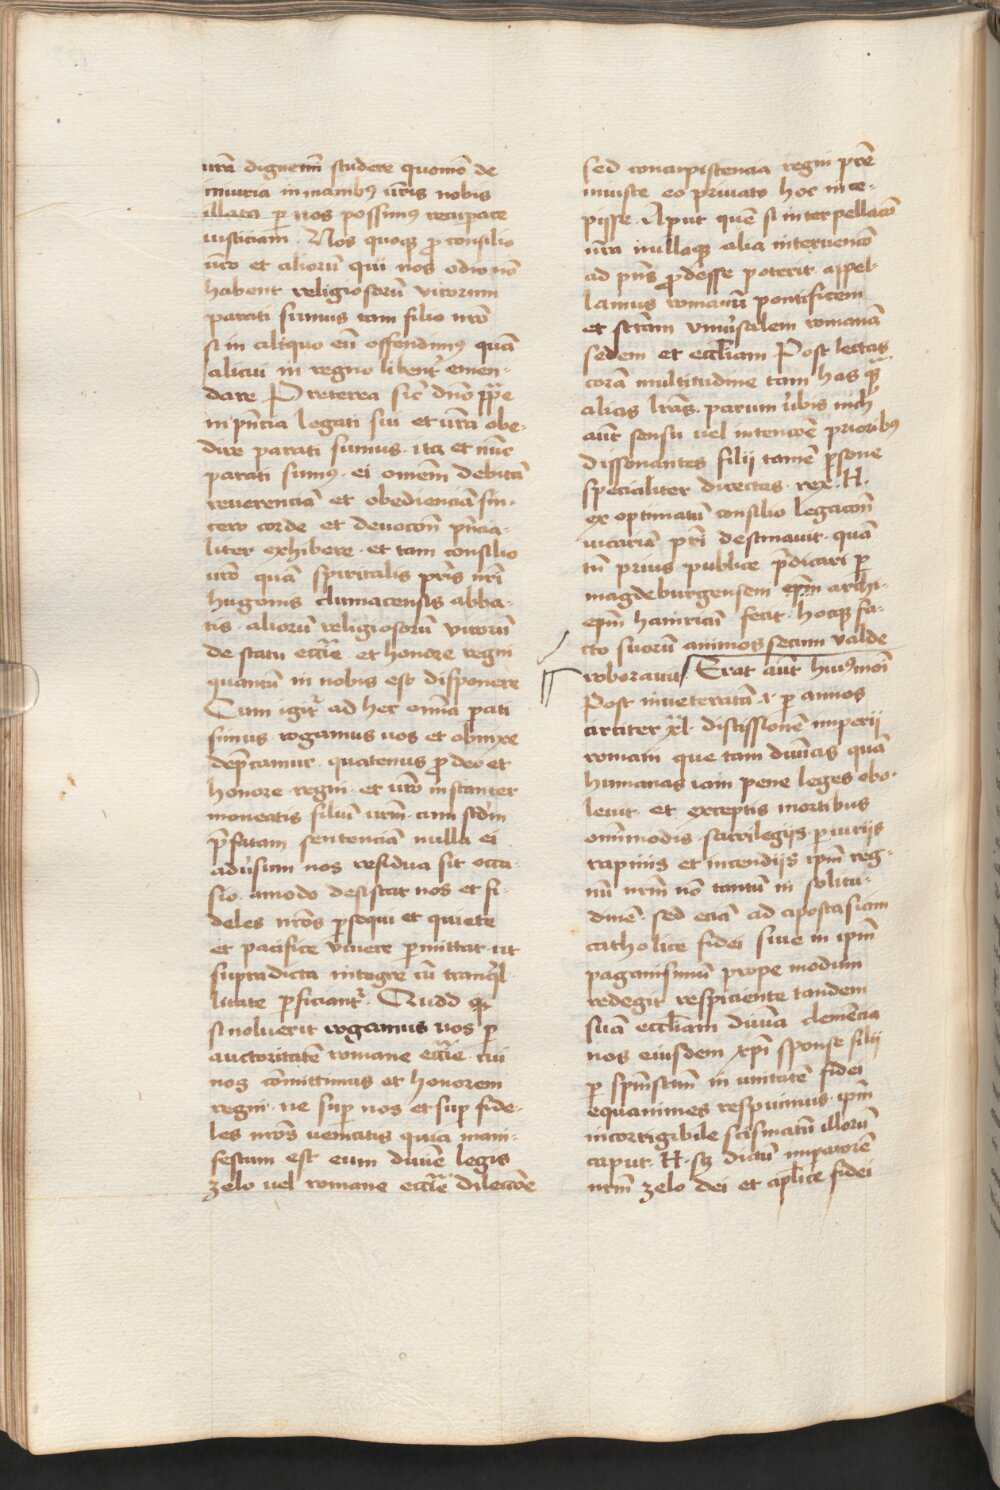 vrã dignemĩ studere quomõ de
iniuria in manib⁹ vr̃is nobis
illata ꝑ uos possim⁹ recupare
iusticiam . Nos quoq; ꝓ consilio
ur̃o et aliorũ qui nos odio nõ
habent religiosorũ virorum
parati sumus tam filio nr̃o
si in aliquo eũ offendim⁹ quã
alicui in regno libent̾ emen-
dare P̱reterea sic̃ dño ꝑp̃e
in p̃ncia legati sui et ur̃a obe-
dire parati sumus . ita et nũc
parati sum⁹ . ei omẽm debitã
reuerenciã et obedienciã sin-
cero corde et deuocõñ p̃ncia-
liter exhibere . et tam consilio
ur̃o quã spiritalis pr̃is nr̃i
hugonis cluniacensis abba-
tis . aliorũ religiosorũ virorũ
de statu eccl̃ie et honore regni
quantũ in nobis est disponere
Cum igit̾ ad hec omĩa ꝑati
simus rogamus uos et obnixe
dep̃camur . quatenus ꝓ deo et
honore regni . et ur̃o instanter
moneatis filiũ urm̃ . cum scd̾m
p̃fatam sentenciã nulla ei
adu̾sum nos residua sit occa-
sio . amodo desistat nos et fi-
deles nr̃os ꝑsequi et quiete
et pacifice viuere ꝑmittat . ut
supradicta integre cũ tranq̾l-
litate ꝑficiant̾ . Quod q;
si noluerit rogamus uos ꝑ
auctoritatẽ romane eccl̃ie . cui
nos cõmittimus et honorem
regni . ne suꝑ nos et suꝑ fide-
les nr̃os ueniatis quia mani-
festum est eum diuiẽ legis
zelo uel romane eccl̃e dileccõe
sed concupistencia regni pr̃e
iniuste eo priuato hoc ince-
pisse . Aput quẽ si interpellacõ
ur̃a nullaq; alia interuencõ
ad p̃ñs ꝓdesse poterit . appel-
lamus romanũ pontificem
et sctãm vniu̾salem romanã
sedem et eccl̃iam Post lectas
corã multitudine tam has q̃ꝫ
alias lr̃as . parum v̾bis nich̾
aũt sensu uel intencõe prioribus
dissonantes filij tamẽ ꝑsone
specialiter directas . rex . H .
ex optimatũ consilio legacõñ
uicariã pr̃i destinauit . quã
tñ prius publice p̃dicari ꝑ
magdeburgensem ep̃m archi-
ep̃m hainricũ fecit . hocq; fa-
cto suorũ animos secum valde
roborauit / Erat aũt hui⁹moĩ
Post inueteratã . r ꝑ annos
circiter xl̾ . discissionẽ imperij
romani que tam diuĩas quã
humanas iam pene leges obo-
leuit . et exceptis mortibus
omĩmodis . sacrilegijs . ꝑiurijs
rapinis et incendijs ip̃m reg-
nũ nrm̃ nõ tantũ in solitu-
dinẽ . sed eciã ad apostasiam
catholice fidei siue in ip̃m
paganismũ prope modum
redegit respiciente tandem
suã eccl̃iam diuĩa clemẽcia
nos eiusdem xp̃i sponse filij
ꝑ sp̃mscm̃ in unitatẽ fidei
equanimes respuimus . ip̃m
incorrigibile scismatũ illorũ
caput . H . sꝫ dictũ imꝑatorẽ
nrm̃ zelo dei et apl̃ice fidei